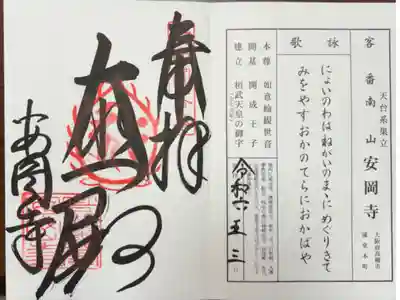 天台系単立
客番 南山 安岡寺
大阪府高槻市
浦堂本町
詠歌
にょいのわは ねがいのまゝに めぐりきて
みをやすおかのてらにおかばや
本尊 如意輪観世音
開基 開成王子
建立 桓武天皇の御宇
令和六 五 三
奉拝
大悲殿
安岡寺